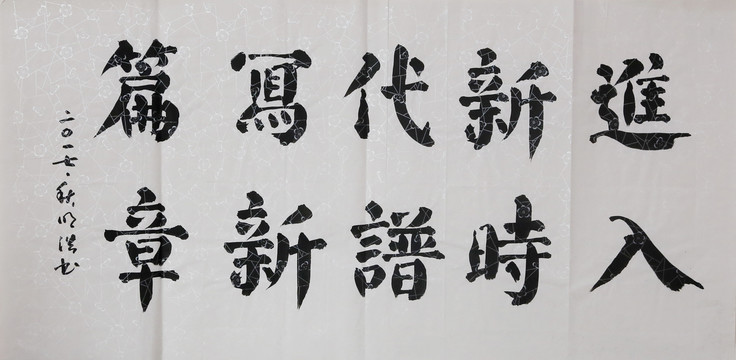 進入
新時
代譜
寫新
篇章
二〇一七·秋明浩书